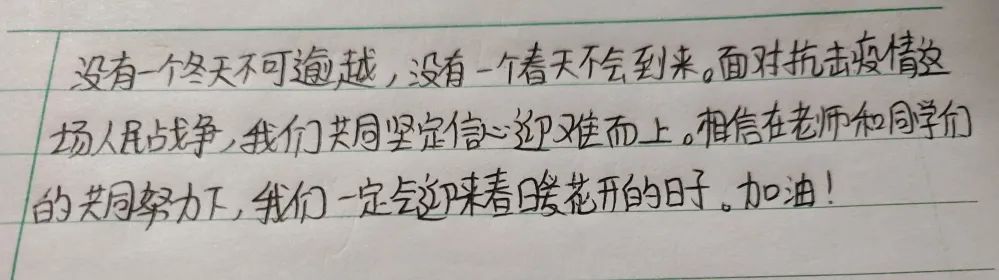 没有一个冬天不可逾越，没有一个春天不会到来。面对抗击疫情这
场人民战争，我们共同坚定信心迎难而上。相信在老师和同学们
的共同努力下，我们一定会迎来春日暖花开的日子。加油！